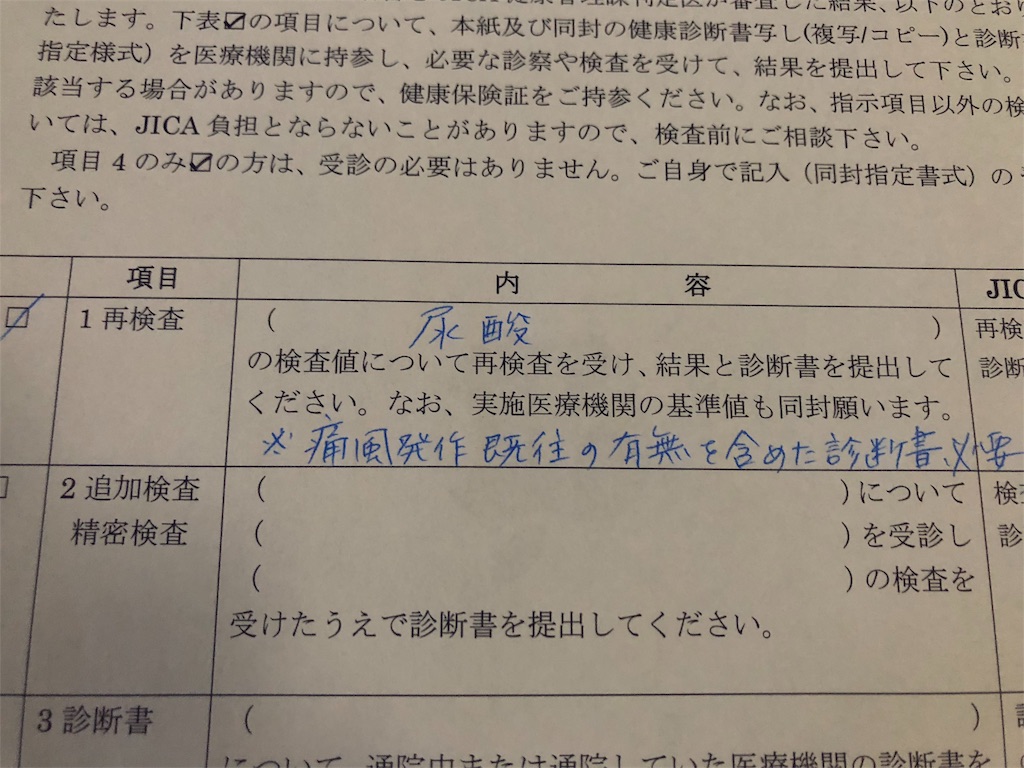 健康管理課判定医が審査した結果、以下のとおり
たします。下表☑の項目について、本紙及び同封の健康診断書写し(複写/コピー)と診断
指定様式）を医療機関に持参し、必要な診察や検査を受けて、結果を提出して下さい。
該当する場合がありますので、健康保険証をご持参ください。なお、指示項目以外の検
いては、JICA 負担とならないことがありますので、検査前にご相談下さい。
項目 4 のみ☑の方は、受診の必要はありません。ご自身で記入（同封指定書式）の
下さい。
項目 内 容 JIC
☑ 1 再検査 ( 尿酸 ) 再検
の検査値について再検査を受け、結果と診断書を提出して 診断
ください。なお、実施医療機関の基準値も同封願います。
※ 痛風発作既往の有無を含めた診断書必要
□ 2 追加検査 ( )について 検査
精密検査 ( )を受診し 診
( )の検査を
受けたうえで診断書を提出してください。
3 診断書 ( )
について、通院中または通院していた医療機関の診断書を